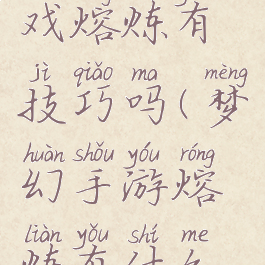 戏熔炼有
jì qiǎo ma mèng
技巧吗(梦
huàn shǒu yóu róng
幻手游熔
liàn yǒu shí me
炼有什么